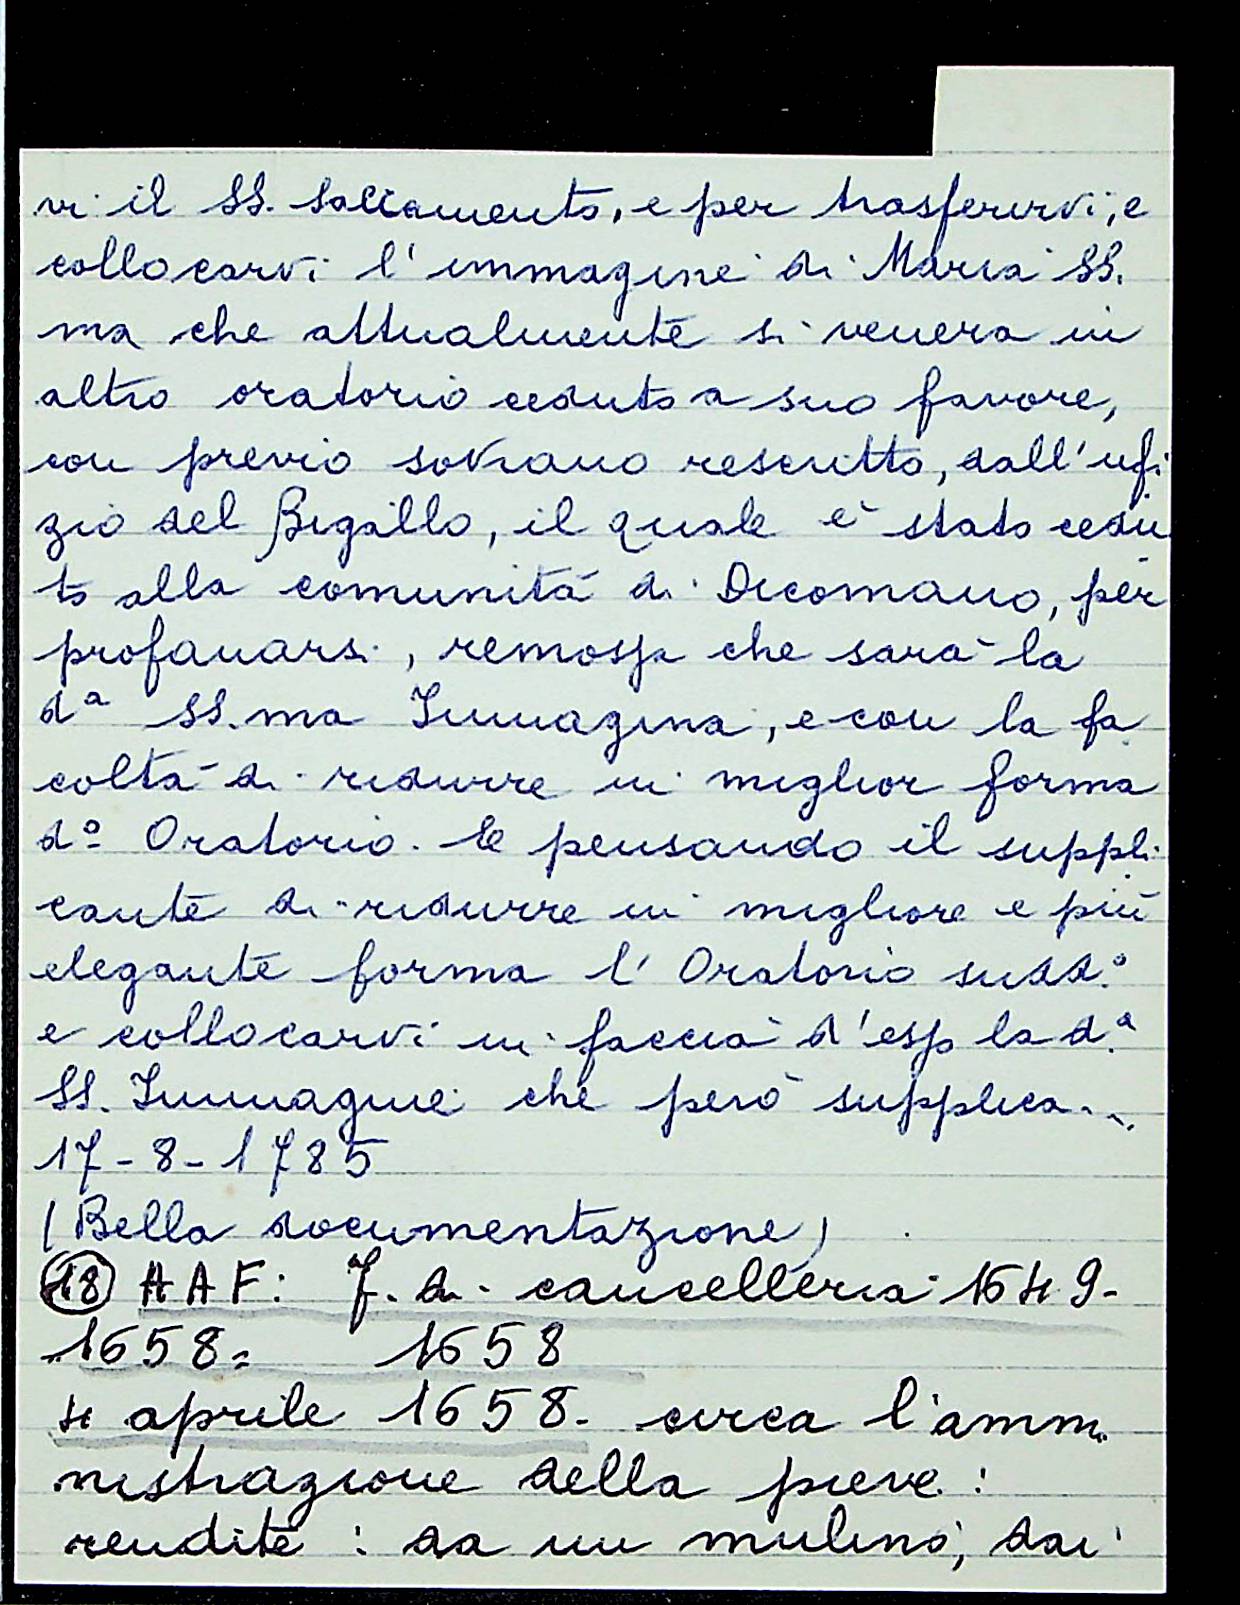 vi il SS. Sacramento, e per trasferirvi, e
collocarvi l'immagine di Maria SS.
ma che attualmente si venera in
altro oratorio ceduto a suo favore,
con previo sovrano rescritto, dall'ufi
zio del Bigallo, il quale è stato cedu
to alla comunità di Dicomano, per
profanarsi, remossa che sarà la
dª SS.ma Immagina, e con la fa
coltà di ridurre in miglior forma
dº Oratorio. E pensando il suppli
cante di ridurre in migliore e più
elegante forma l'Oratorio sudd.º
e collocarvi in faccia d'esso la d.ª
SS. Immagine che però supplica...
17-8-1785
(Bella documentazione)
18 AAF: f. di cancelleria 1649-
1658= 1658
4 aprile 1658- circa l'ammi
nistrazione della pieve:
rendite: da un mulino, dai